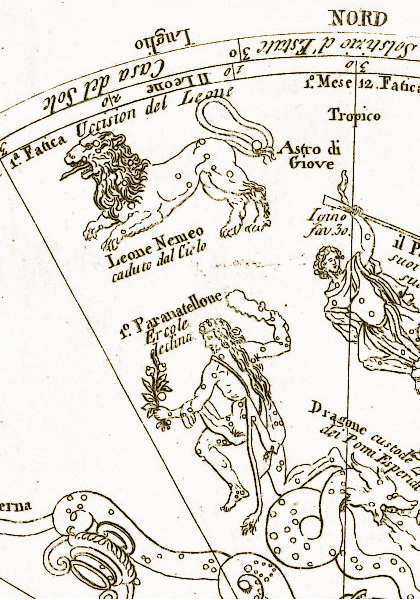 NORD
Luglio
Solstizio d'Estate
Casa del Sole
30
Il Leone
20
10
30
1.º Mese
12. Fatica
1.ª Fatica Uccision del Leone
Tropico
Astro di
Giove
Igino
fav. 30.
il P
suo
Leone Nemeo
caduto dal Cielo
1.º Paranatellone
Ercole
declina
Dragone custode
dei Pomi Esperidi
erna